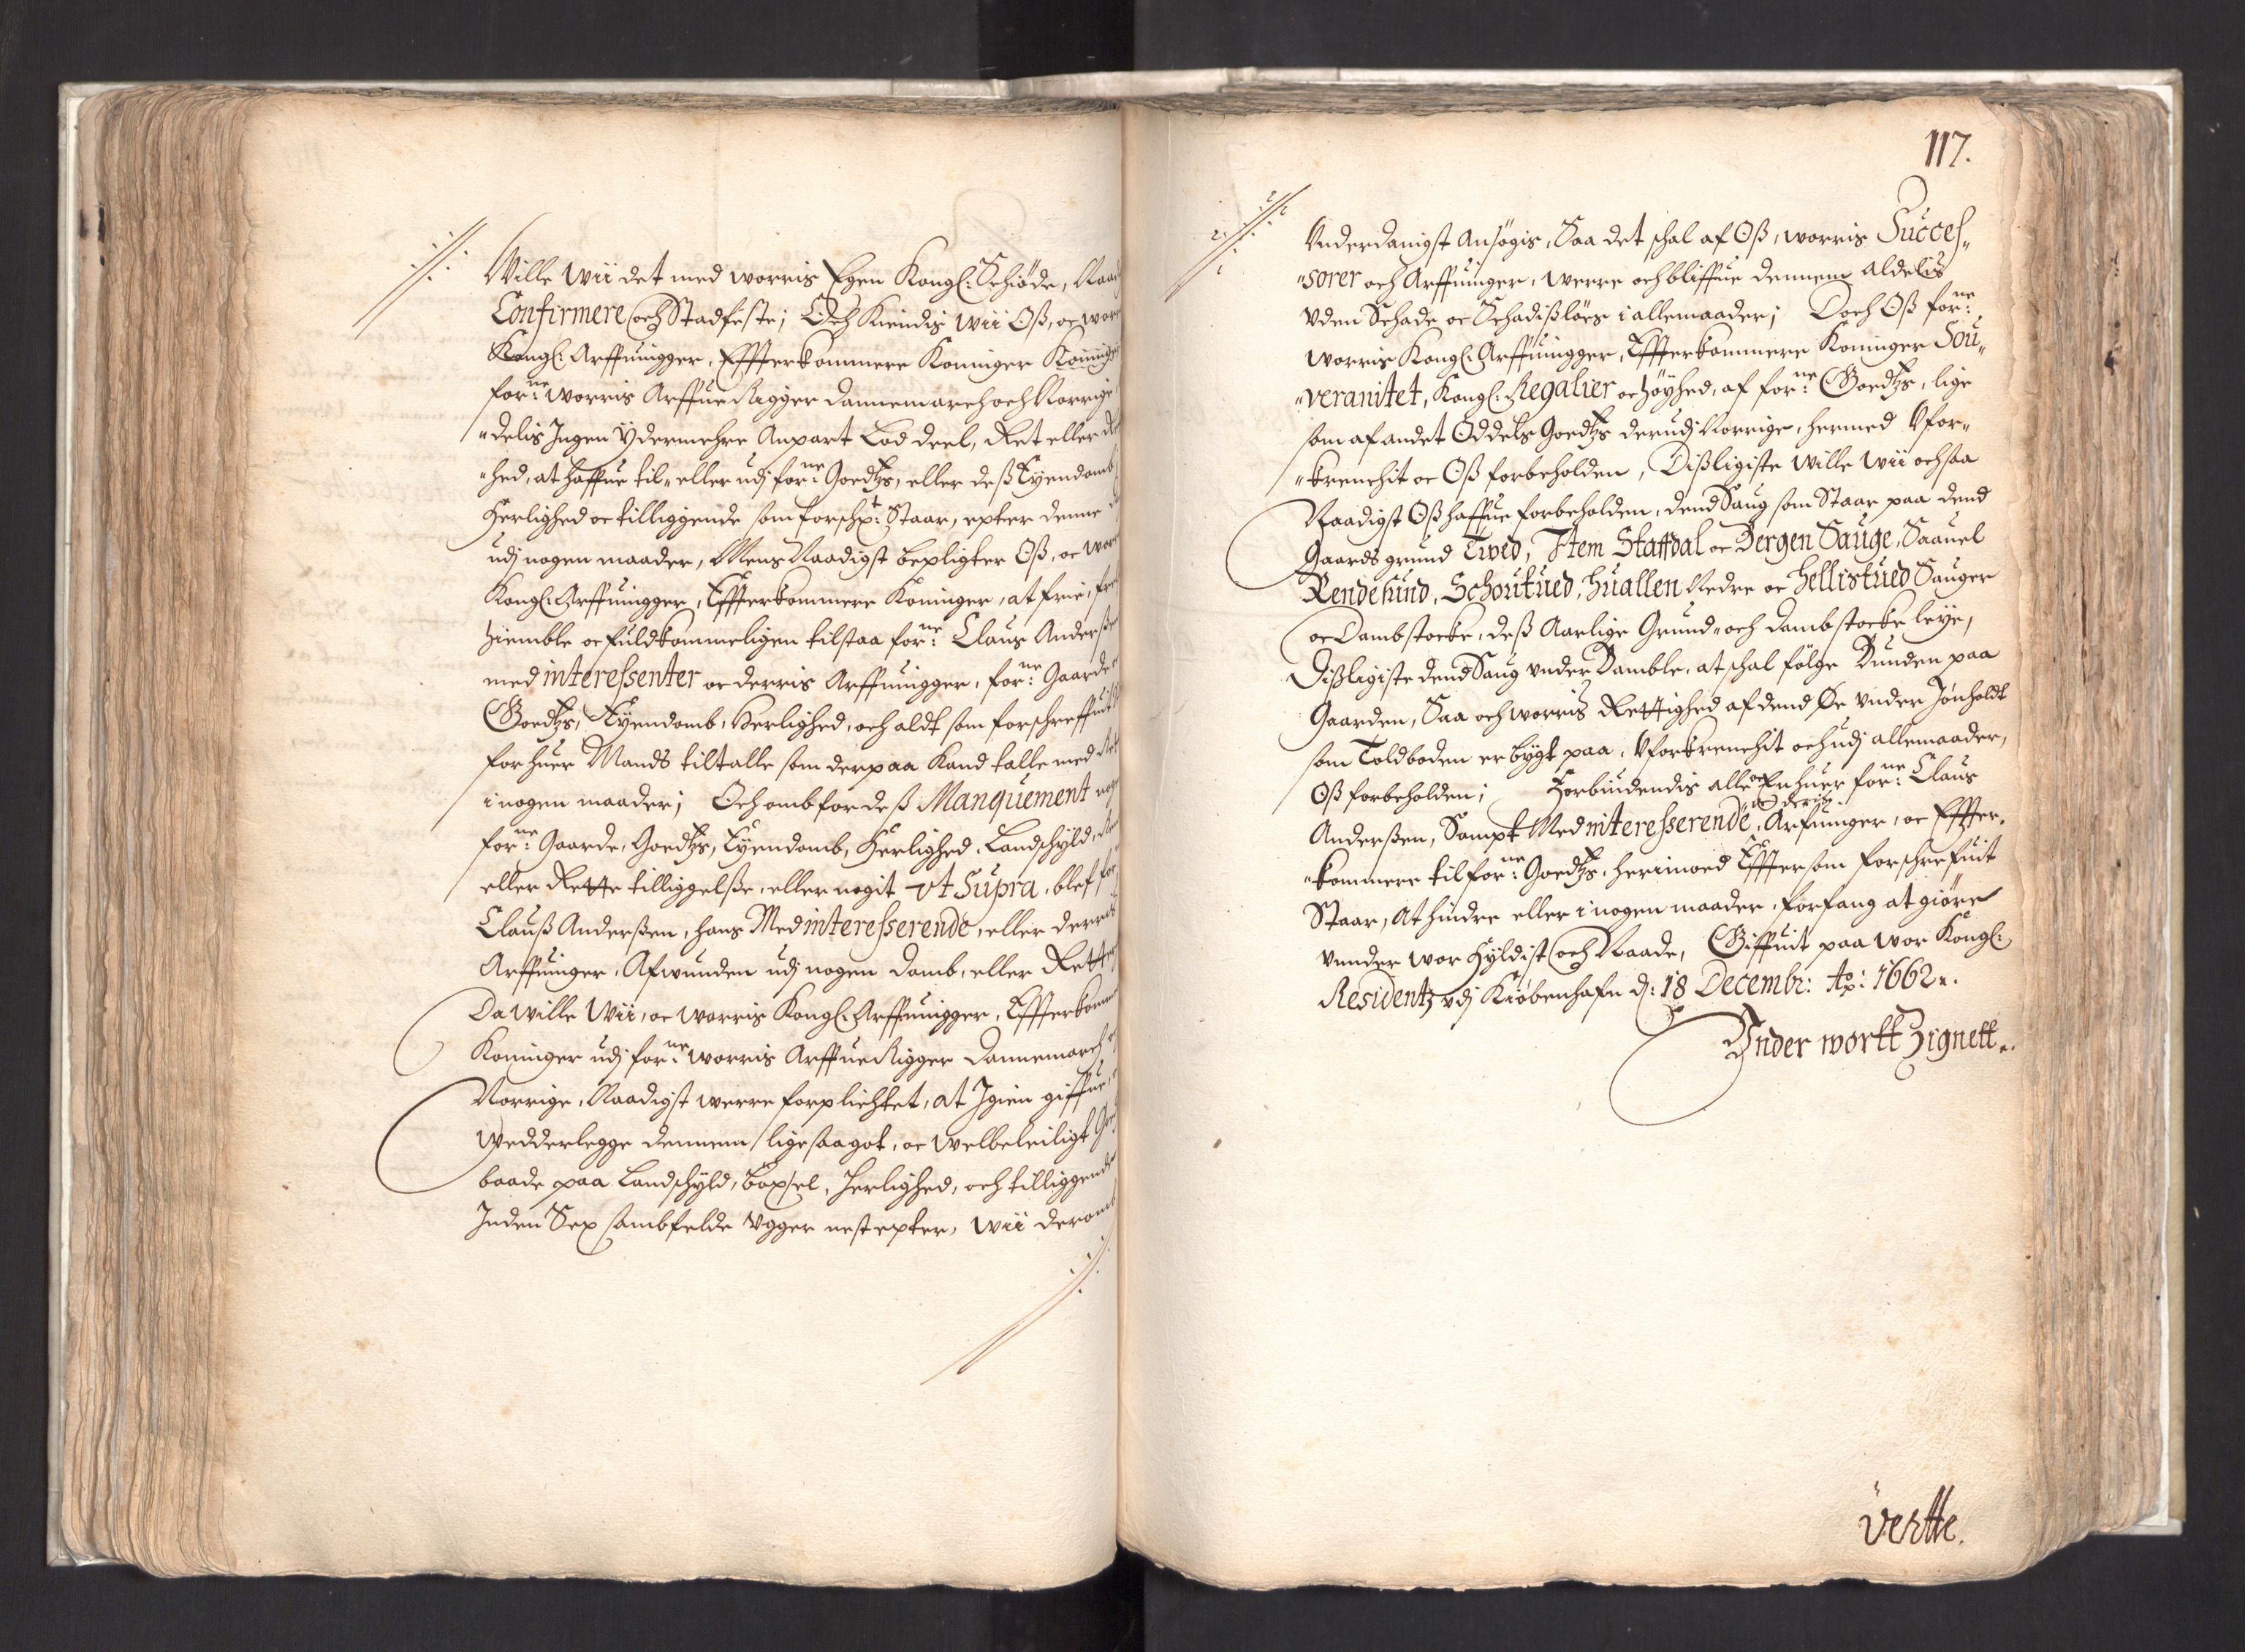 Wille Wii det med worris Egen Kongl: Schiöde, Naad
Confirmere och Stadfeste; Och Kiendis Wii Oß, oc worr
Kongl: Arffuingger, Effterkommere Koninger
for:ne worris Arffue Rigger Dannemarch och Norrige
"delis Ingen Ydermehre Anpart Lod deel, Ret eller
"hed, at haffue til- eller udj for:ne Goedtzs, eller deß Eyendomb
Herlighed oc tilliggende som forschr: Staar, epter denne
udj nogen maader, Mens Naadigst bepligter Oß, oc worr
Kongl: Arffuingger, Effterkommere Koninger, at frie, fre
hiemble oc fuldkommeligen tilstaa for:ne Claus Anderßen
med interessenter oc derris Arffuingger, for:ne Gaarde
Goedtzs, Eyendomb, Herlighed, och aldt som forschreffuit
for huer Mands tiltalle som derpaa kand talle med Ret
i nogen maader; Och omb for deß Manquement
for:ne Gaarde, Goedtzs, Eyendomb, Herlighed, Landschyld,
eller Rette tilliggelße, eller nogit vt Supra, blef for
Clauß Anderßen, hans Medinteresserende, eller derris
Arffuinger, Afwunden udj nogen Domb, eller Retterg
Da Wille Wii, oc worris Kongl: Arffuingger, Effterkomm
Koninger udj for:ne worris Arffue Rigger Dannemarch
Norrige, Naadigst werre forplichtet, at Igien giffue,
Wedderlegge dennem lige saa got, oc Welbeleiligt
baade paa Landschyld, Böxsel, Herlighed, och tilliggende
Inden Sex sambfelde Vgger nest epter, Wii deromb
117.
Vnderdanigst Ansögis, Saa det schal af Oß, worris Succes"
"sorer och Arffuinger, werre och bliffue dennem aldelis
vden Schade oc Schadißlöes i allemaader; Doch Oß for:ne
worris Kongl: Arffuingger, Effterkommere Koninger Sou"
"veranitet, Kongl: Regalier oc höyhed, af for:ne Goedtzs, lige
som af andet Oddels Goedtzs derudj Norrige, hermed Vfor"
"krenchit oc Oß forbeholden, Dißligiste Wille Wii ochsaa
Naadigst Oß haffue forbeholden, dend Saug som Staar paa dend
Gaards grund Tved, Item Staffdal oc Bergen Sauge, Saauel
Rendesund, Schoutued, Huallen Nedre oc Hellistued Sauger
oc Dambstocke, deß Aarlige Grund- och dambstocke leye,
Dißligiste dend Saug vnder Bamble, at schal fölge Bunden paa
Gaarden, Saa och worris Rettighed af dend Öe vnder Jonholdt
som Toldboden er bygt paa, Vforkrenchit och udj allemaader,
Oß forbeholden; Forbindendis alle oc Enhuer for:ne Claus
Anderßen, Sampt Medinteresserende, oc deris Arfuinger, oc Effter"
"kommere til for:ne Goedtzs, herimoed Effter som forschrefuit
Staar, At hindre eller i nogen maader forfang at giöre
vnnder wor Hyldist och Naade, Giffuit paa wor Kongl:
Residentz vdj Kiöbenhafn d: 18 Decembr: Ao: 1662.
Vnder wortt Zignett.
vertte.